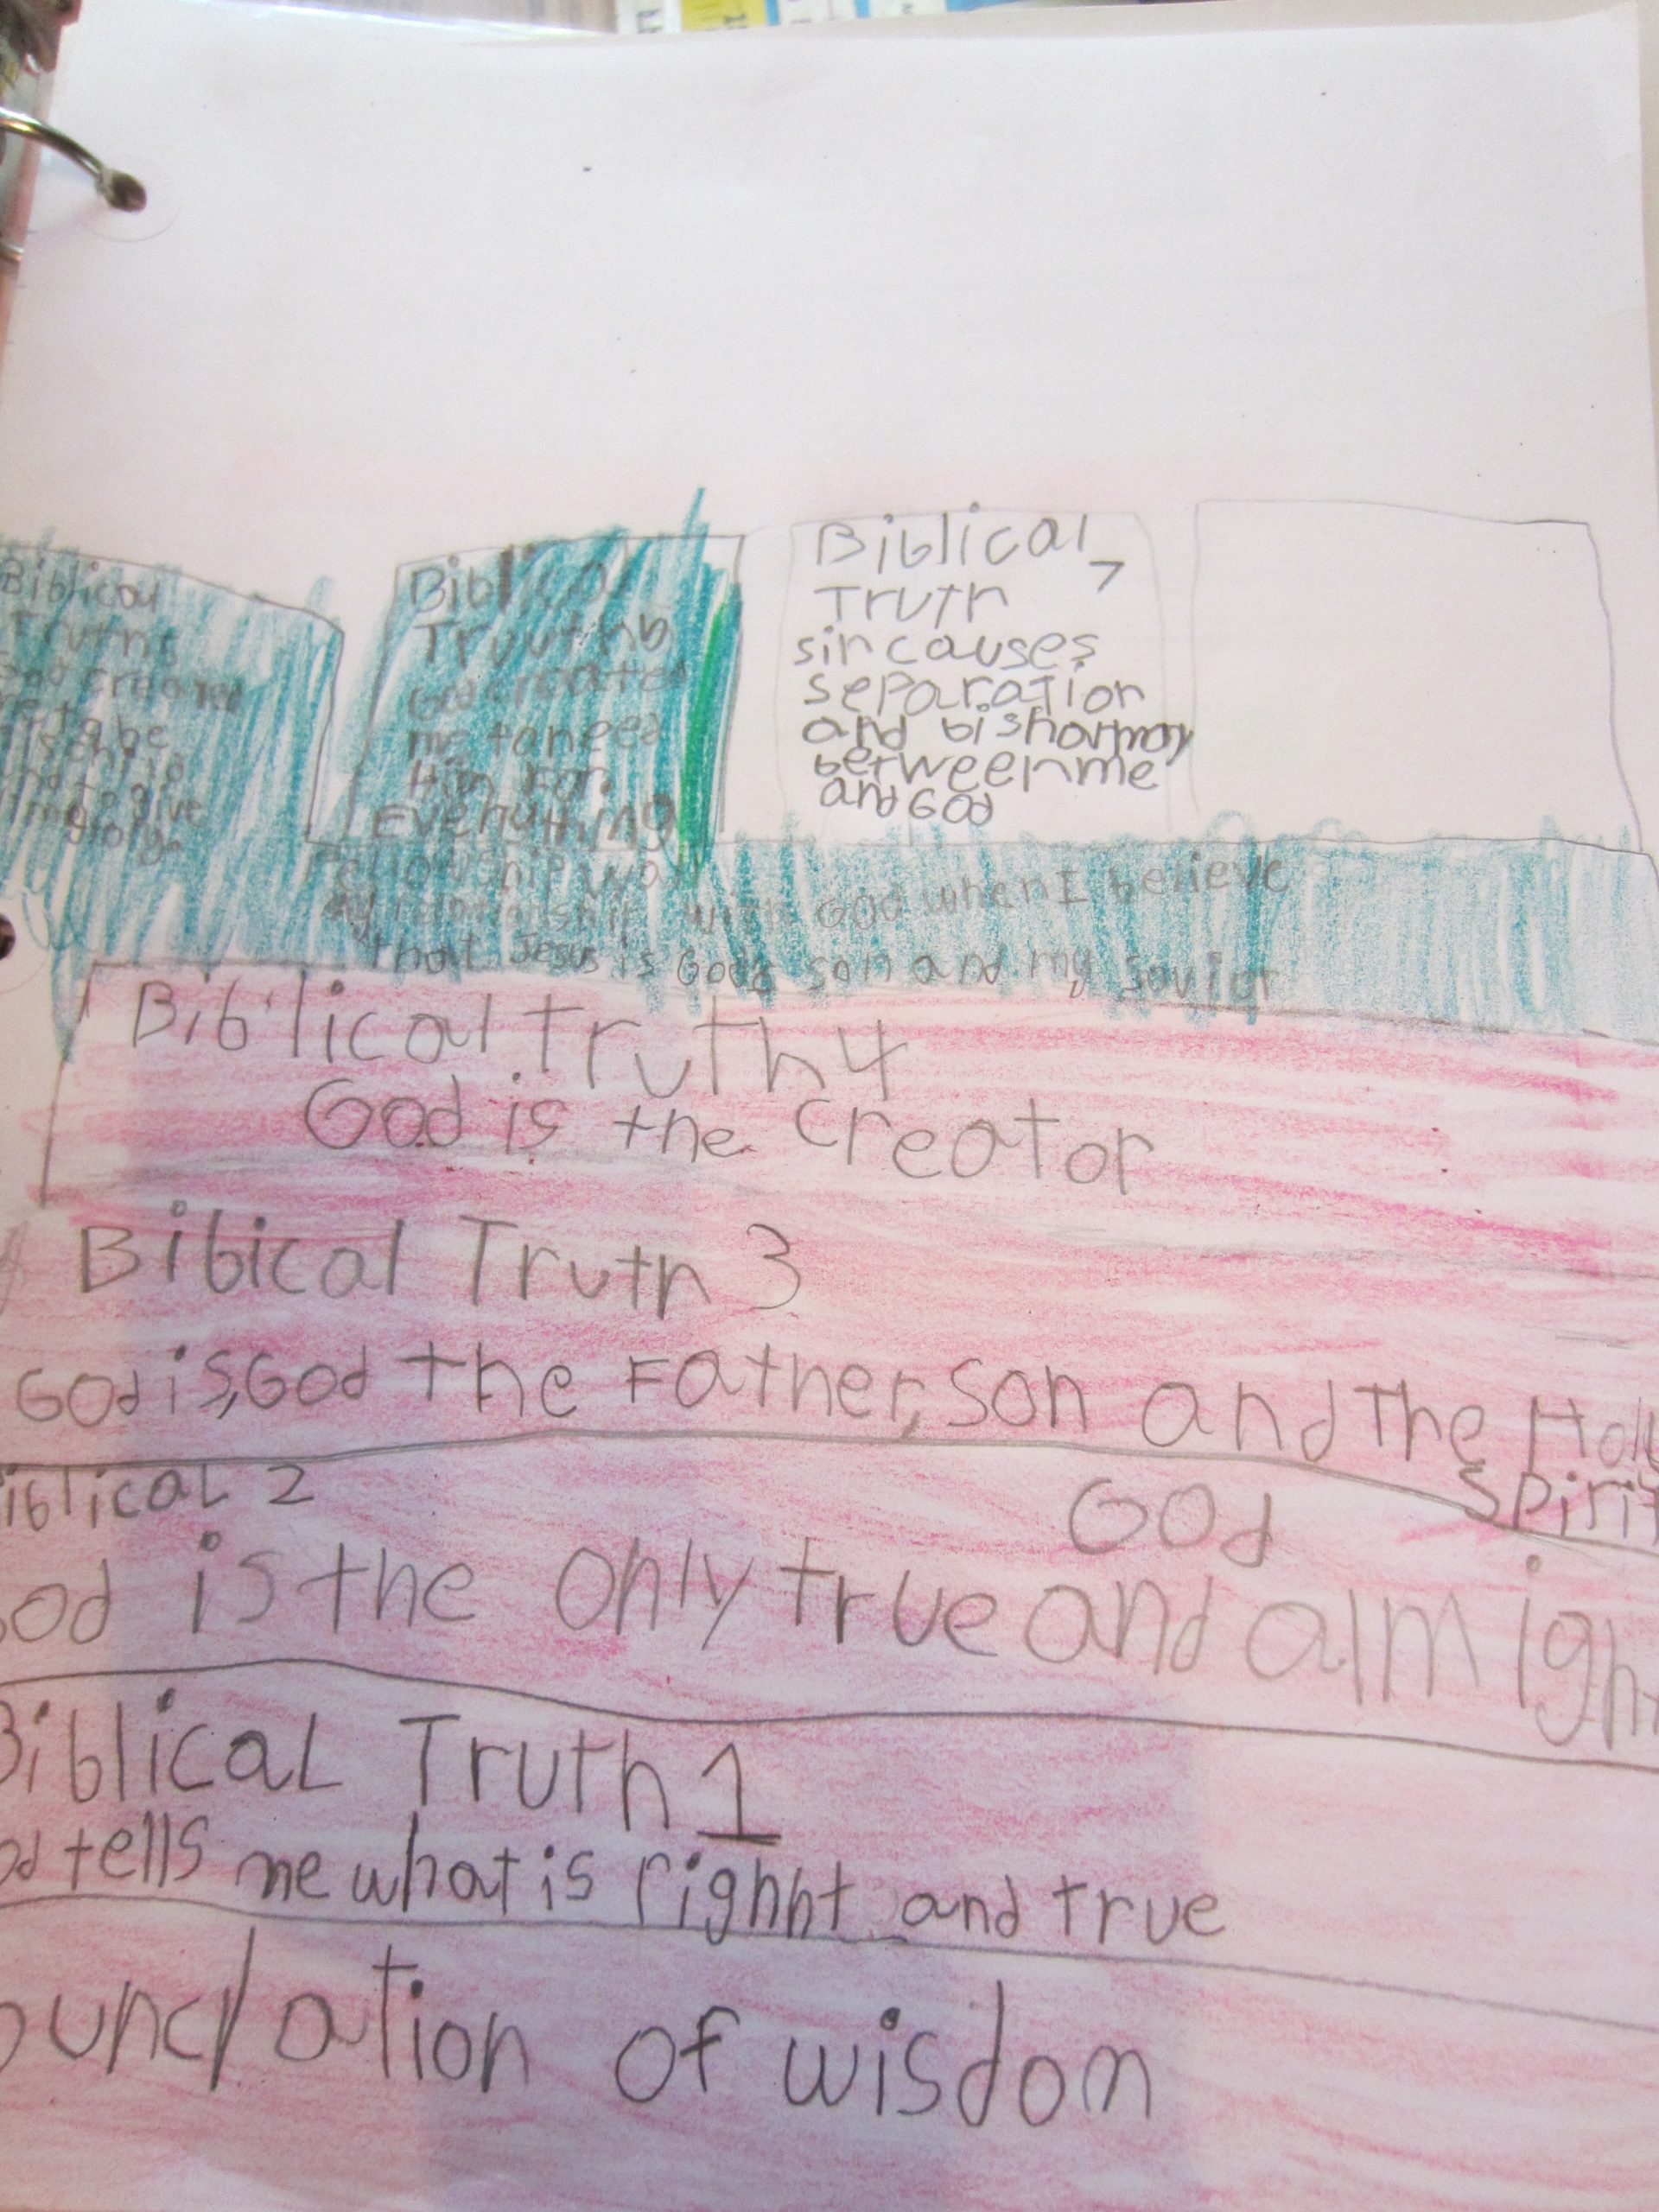 Biblical
Truth 5
God created
me to be
his child
and to give
him glory.
Biblical
Truuth 6
God created
me to need
Him For
Everything
Biblical
Truth 7
sin causes
separation
and disharmony
between me
and God
Fellowship way
My relationship with God when I believe
that Jesus is Gods son and my savior
Biblical Truth 4
God is the creator
Bibical Truth 3
God is, God the Father, Son and The Holy
Spirit
Biblical 2
God
God is the only true and almight
Biblical Truth 1
od tells me what is righht and true
oundation of wisdom